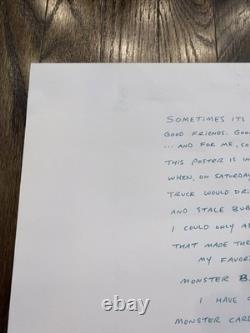 SOMETIMES ITS
GOOD FRIENDS. GOO
... AND FOR ME, SO
THIS POSTER IS IN
WHEN, ON SATURDAY
TRUCK WOULD DRI
AND STALE BUB
I COULD ONLY AF
THAT MADE THE
MY FAVOR
MONSTER B
I HAVE
MONSTER CAR
ebay